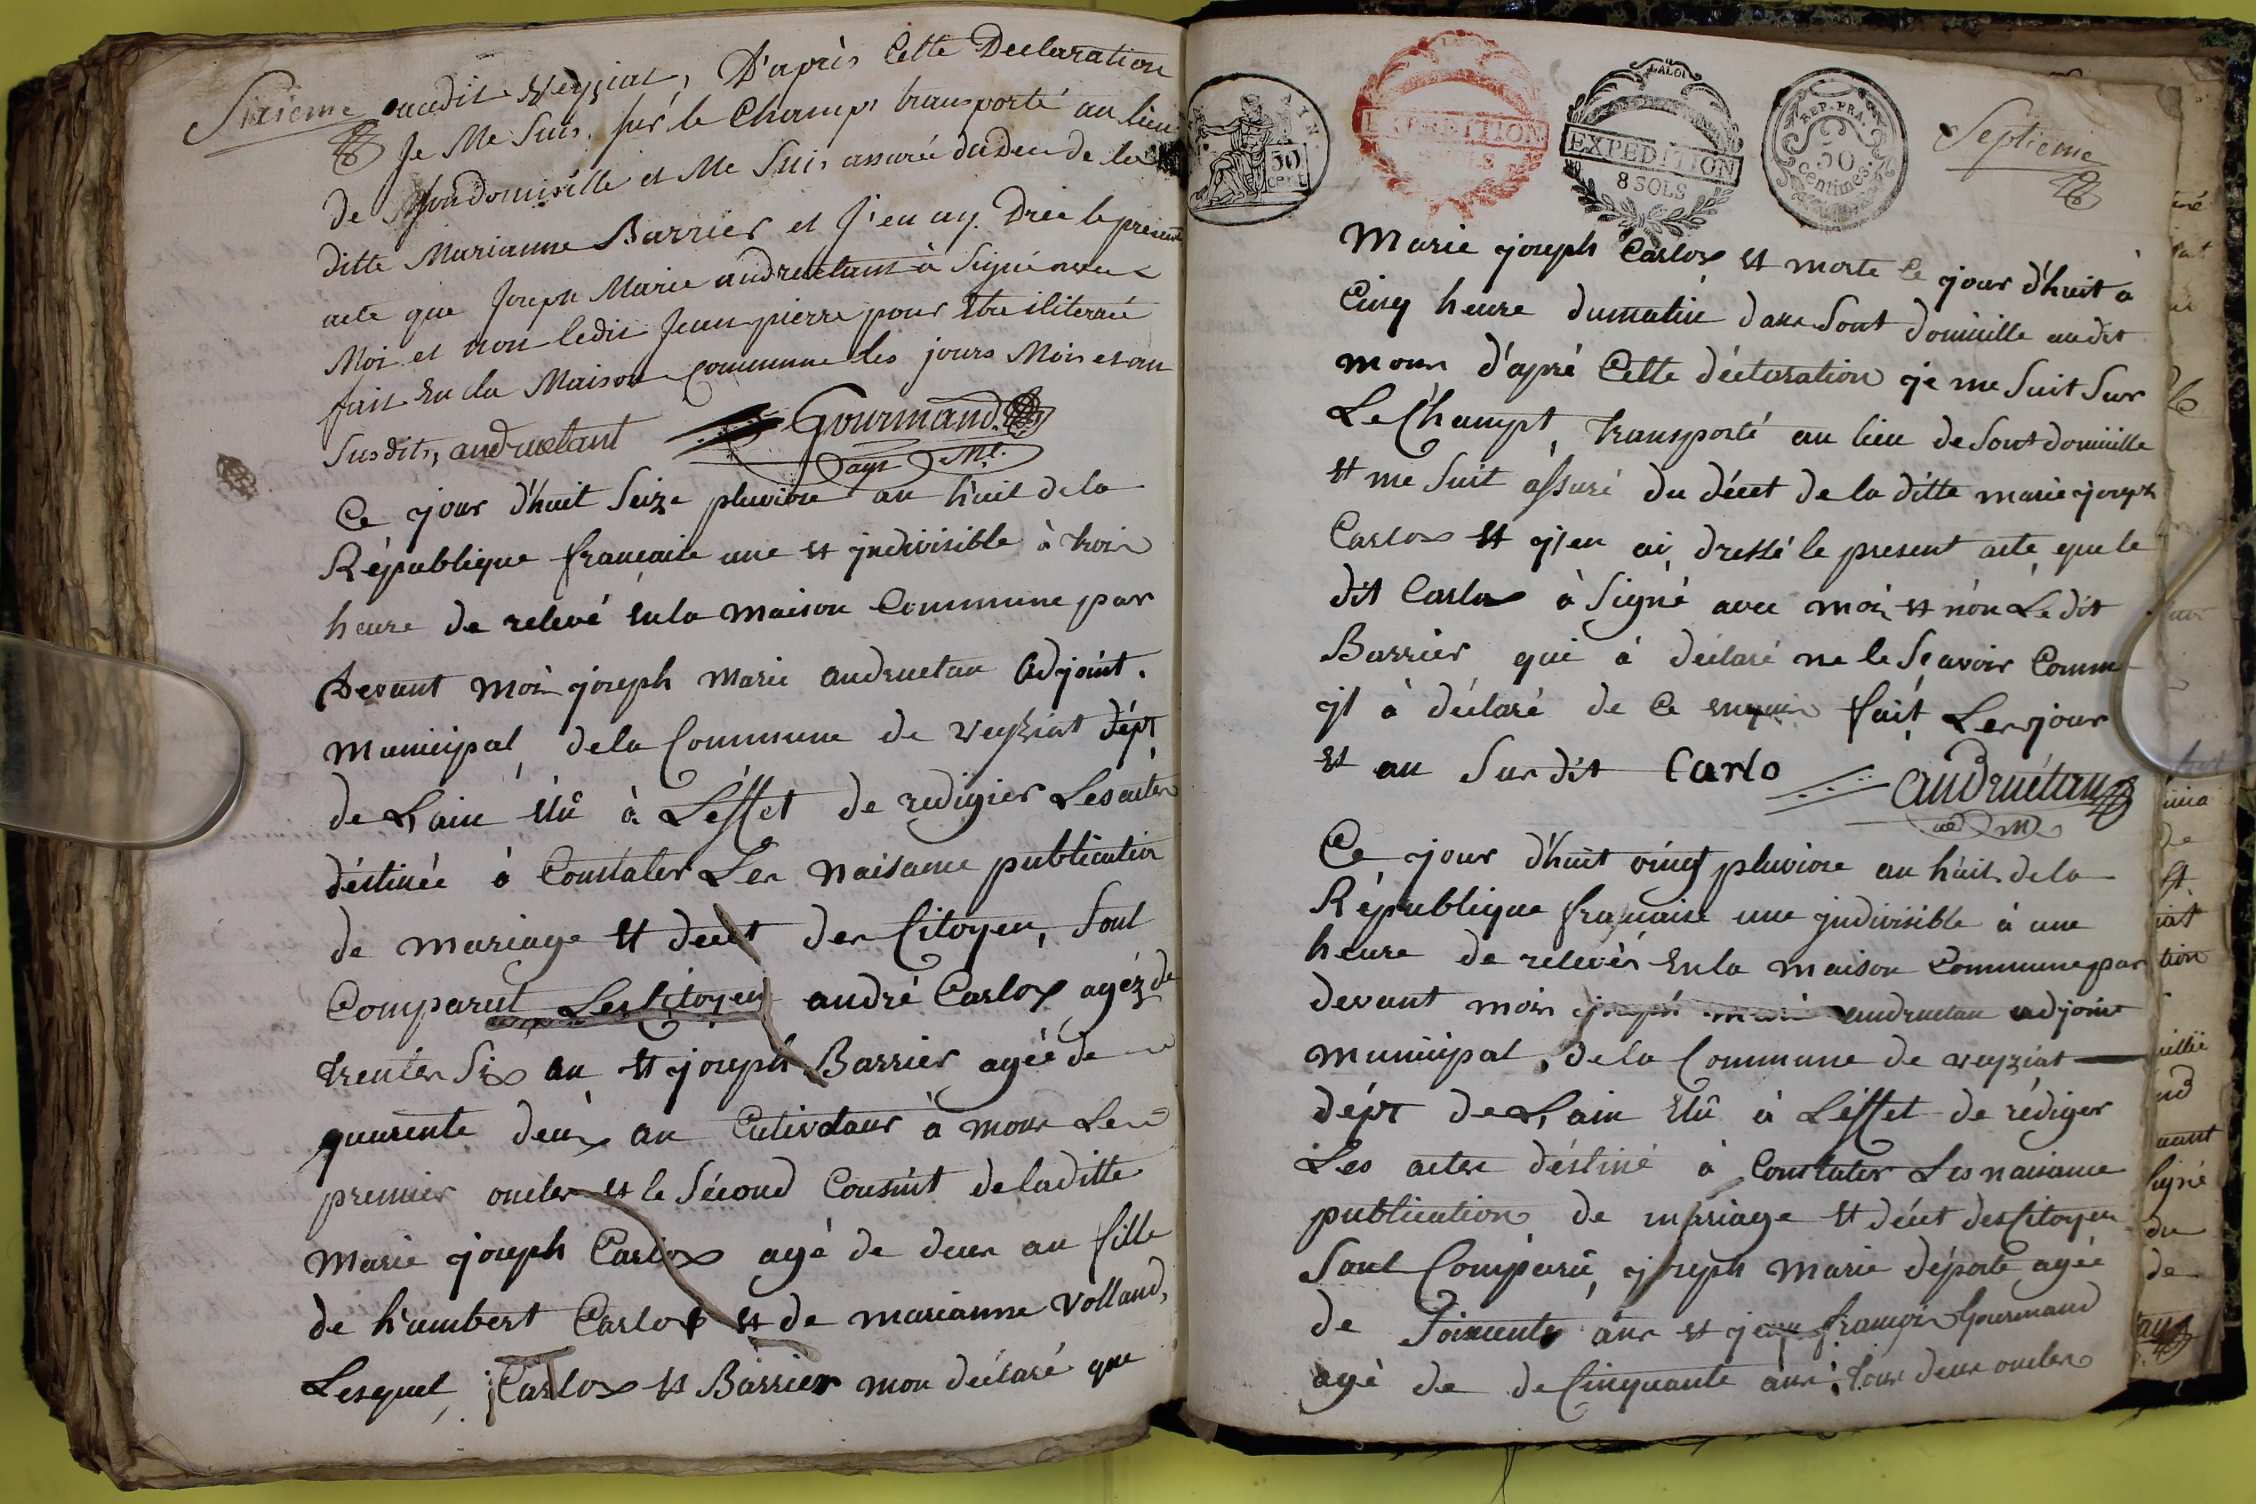 Sixieme
audit Veyziat, D'après Cette Declaration
Je Me Suis sur le Champs transporté au lieu
de Son domicille et Me Suis assuré du Deu de la
ditte Marianne Barrier et J'en ay Dréé le present
acte que Joseph Marie andruetant à Signé avec
Moi et non ledit Jean pierre pour Etre iliteraé
fait En la Maison Commune les jours Mois et an
Susdits, andruetant Gourmand
agt Ml.
Ce jour d'huit Seize pluviose an huit de la
République francaite une et jndivisible à trois
heure de relevé en la maison Commune par
Devant moi joseph marie andruetan Adjoint
municipal de la Commune de veyziat dépt
de L'ain élû à L'éffet de redigier Les actes
déstinée à Constater Les naisance publication
de mariage et decet des Citoyen, Sont
Comparut Les Citoyen andré Carlox agéz de
trentes Six an et joseph Barrier agée de
quarente deux an Cutivataur à mons Le
premier oncles et le Sécond Cousint de la ditte
marie joseph Carlox agé de deux an fille
de humbert Carlox et de marianne volland,
Lesquel Carlox et Barrier mon déclaré que
30
CENT
EXPEDITION
SOLS
LA LOI
EXPEDITION
8 SOLS
REP. FRA.
50
centimes
Septieme
Marie joseph Carlox et morte Ce jour d'huit à
Cinq heure du matin dans Sont domicille audit
mons d'apré Cette déclaration je me Suit Sur
Le Champt, transporté au lieu de Sont domicille
et me Suit assuré du décet de la ditte marie joseph
Carlox et j'en ai dressé le present acte que le
dit Carlox à Signé avec moi et nón Le dit
Barrier qui à déclaré ne le Sçavoir Comme
jl à déclaré de Ce enquis fait Les jour
et an Sus dit Carlo andruétan
ad M
Ce jour d'huit vingt pluviose an huit de la
République francaise une jndivisible à une
heure de relevés En la maison Commune par
devant mois joseph marie andruetan adjoint
municipal, de la Commune de veyziat
dépt de L'ain Elû à L'éffet de rédiger
Les actes déstiné à Constater Les naisance
publication de mariage et décet des Citoyen
Sont Comparu, joseph marie déporte agée
de Soixente ans et jean françois Gourmand
agé de de Cinquante ans, tous deux oncles